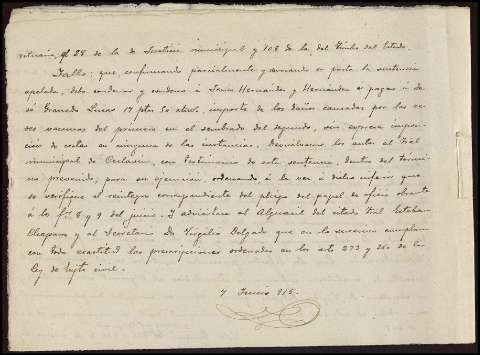 rituaria, el 28 de la de Justicia municipal y 108 de la del Timbre del Estado.
Fallo: que, confirmando parcialmente y revocando en parte la sentencia
apelada, debo condenar y condeno á Hernández y Hernández á pagar á Jo-
sé Granado 17 ptas 50 cts., importe de los daños causados por las re-
ses vacunas del primero en el sembrado del segundo, sin expresa imposi-
ción de costas en ninguna de las instancias. Devuélvanse los autos al Tral
municipal de con testimonio de esta sentencia, dentro del térmi-
no prevenido, para su ejecución, ordenando á la vez á dicho inferior que
se verifique el reintegro correspondiente del pliego del papel de oficio obrante
á los 8 y 9 del juicio. Y adviértase al Alguacil del citado Tral Esteban
y al Secretario Dn Virgilio Delgado que en lo sucesivo cumplan
con toda exactitud las prescripciones ordenadas en los arts 273 y 260 de la
Ley de Enjto civil.
7 Junio 915.